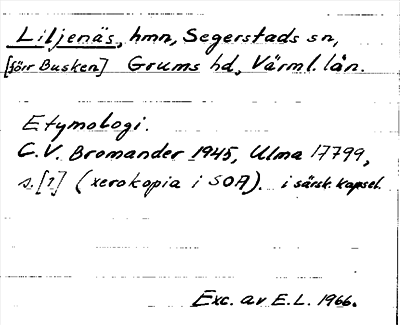 Liljenäs, hmn, Segerstads sn,
[förr Busken] Grums hd, Värml. län.
Etymologi.
C.V. Bromander 1945, Ulma 17799,
s. [1] (xerokopia i SOA). i särsk. kapsel.
Exc. av E.L. 1966.